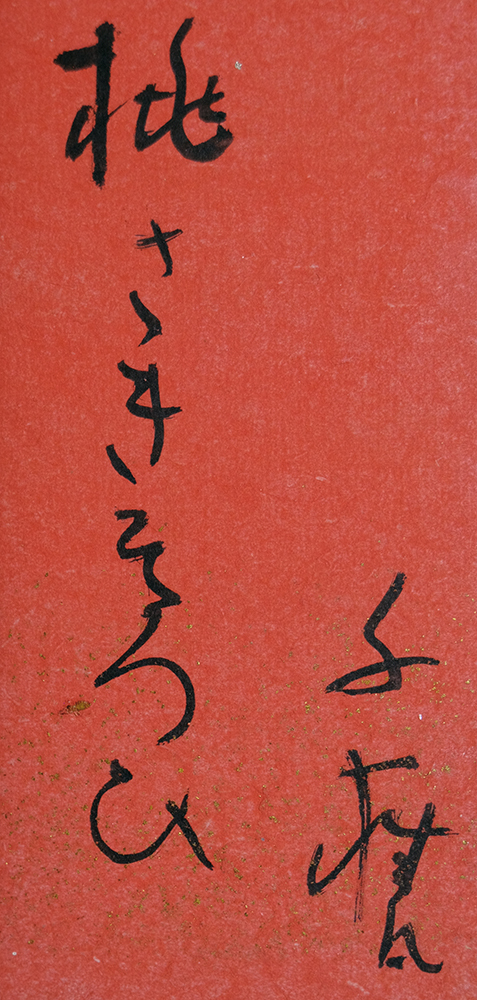 千
桃さきそろひ